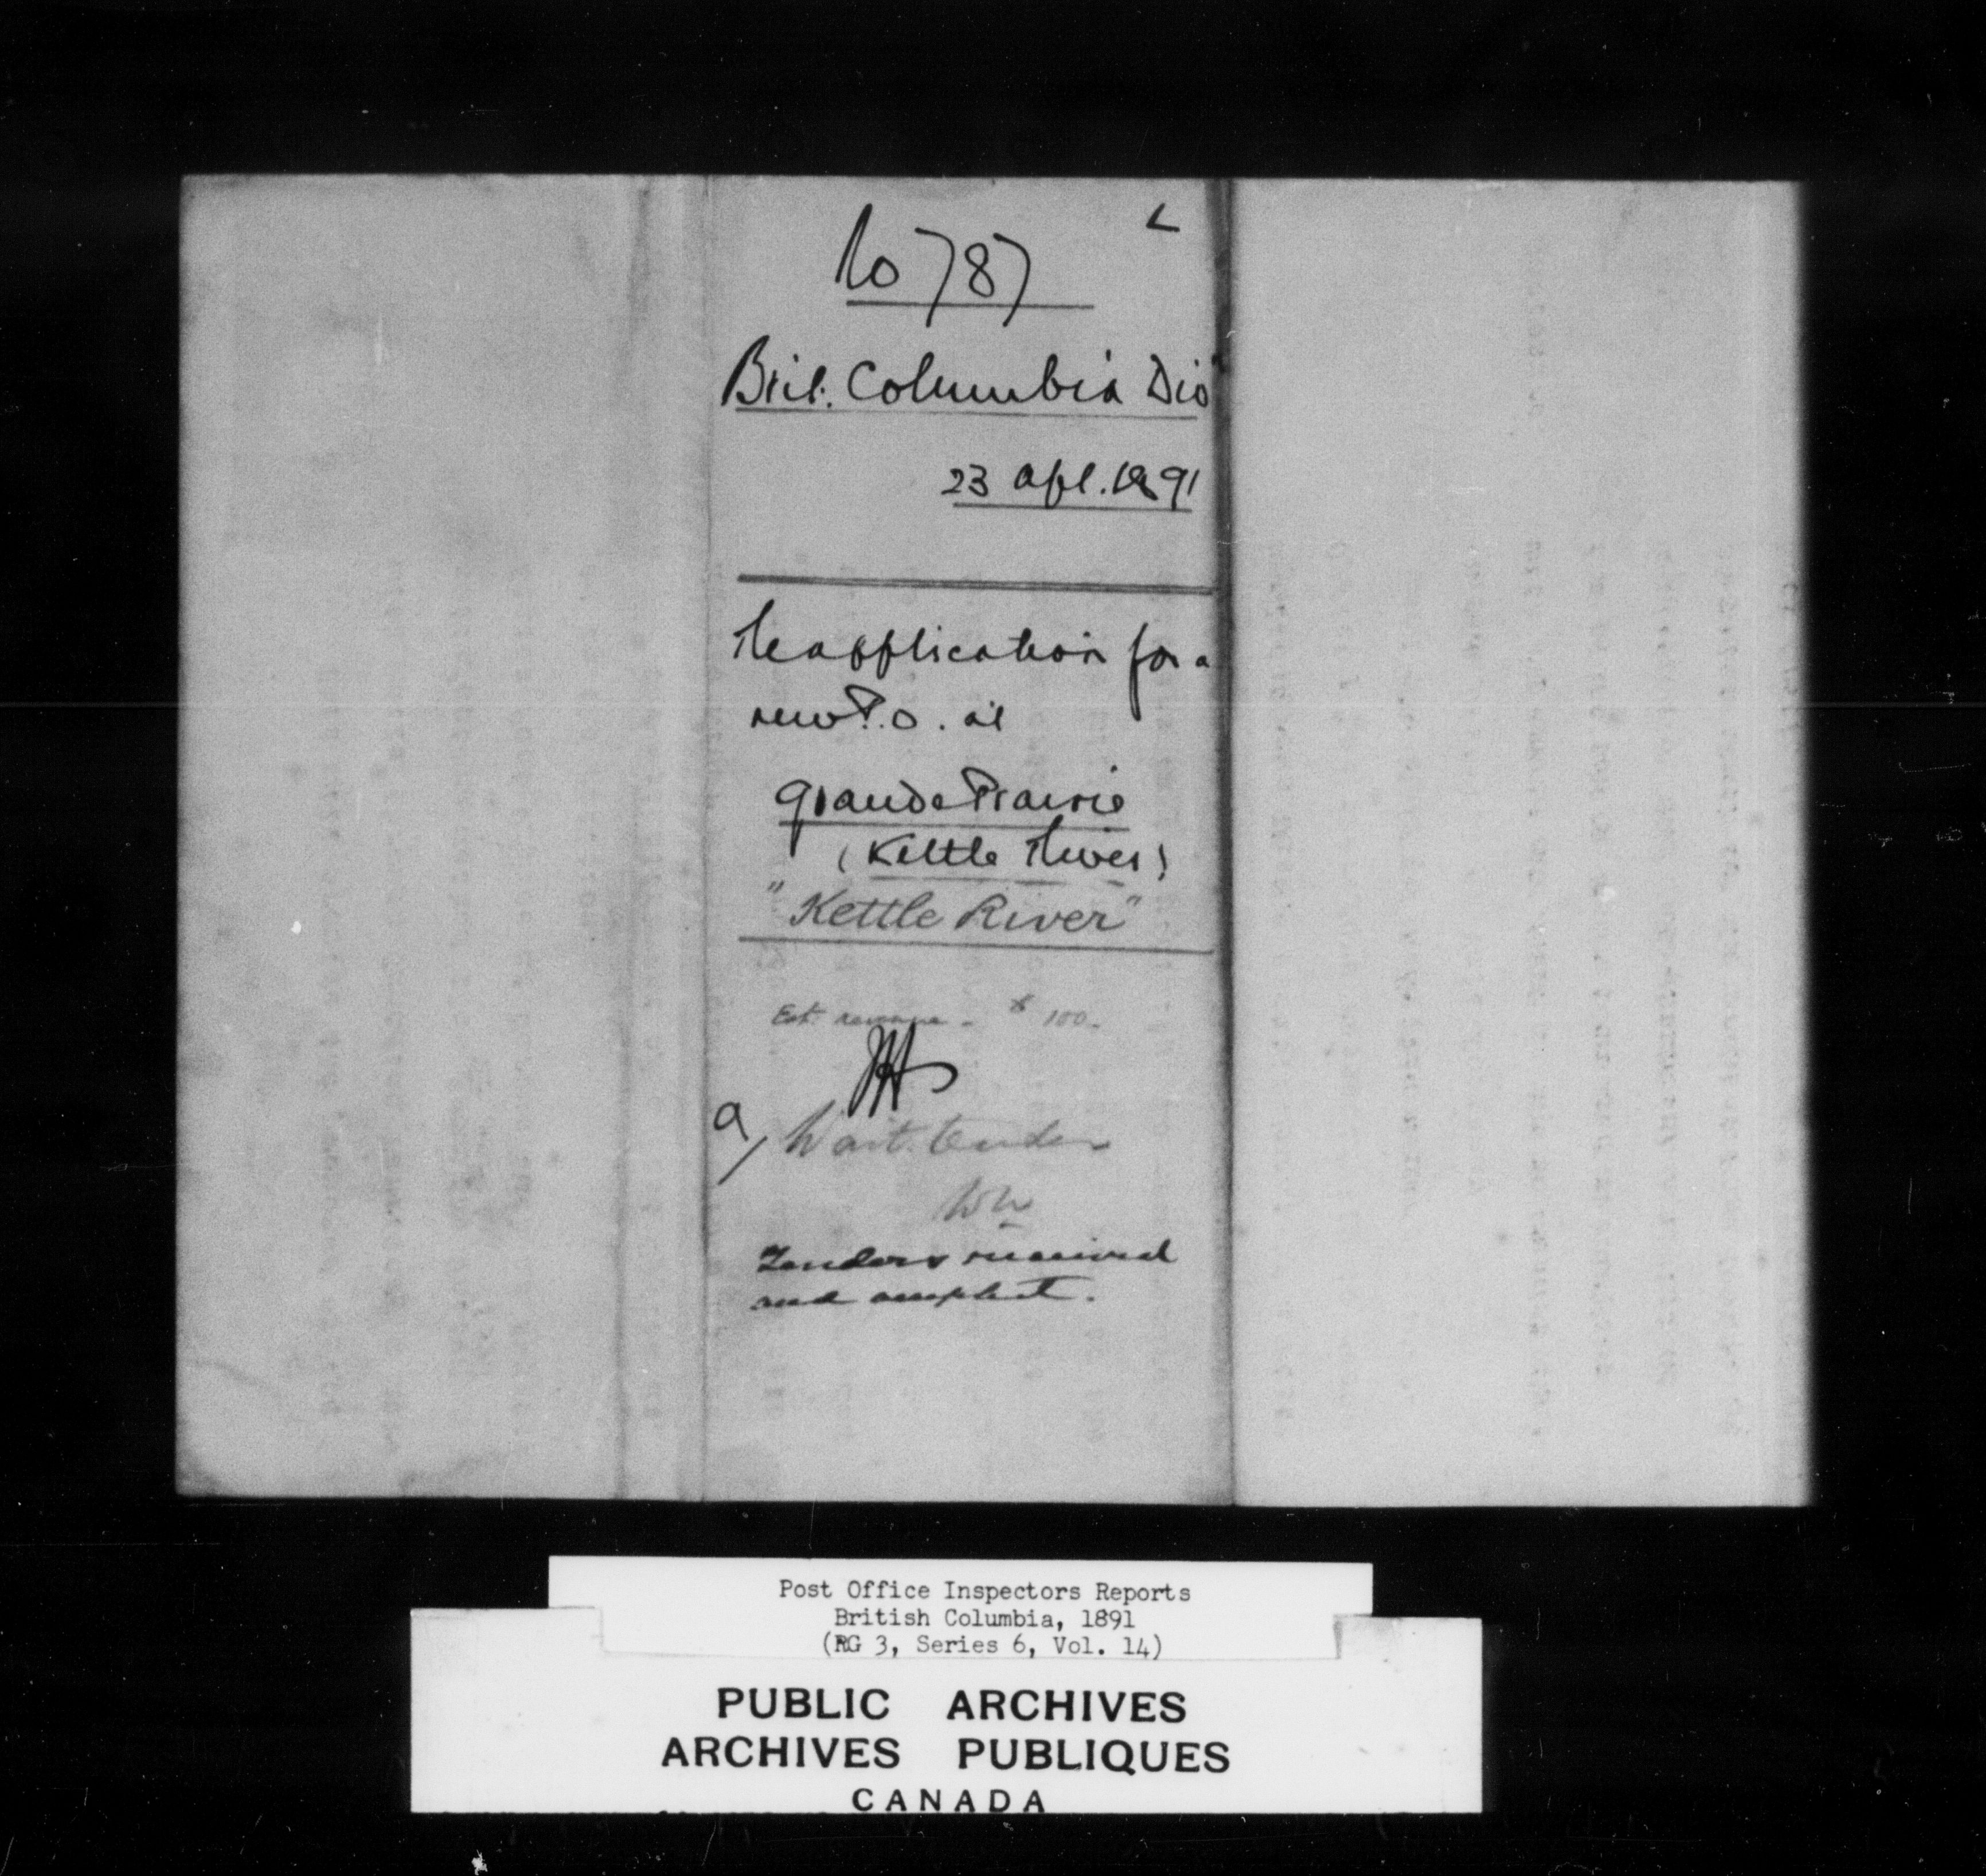 No 787
Brit. Columbia Divn
23 Apl. 1891
Re application for a
new P.O. at
Grande Prairie
(Kettle River)
"Kettle River"
Est. revenue - $ 100-
a/ Wait tender
Tenders received
and accepted.
Post Office Inspectors Reports
British Columbia, 1891
(RG 3, Series 6, Vol. 14)
PUBLIC ARCHIVES
ARCHIVES PUBLIQUES
CANADA